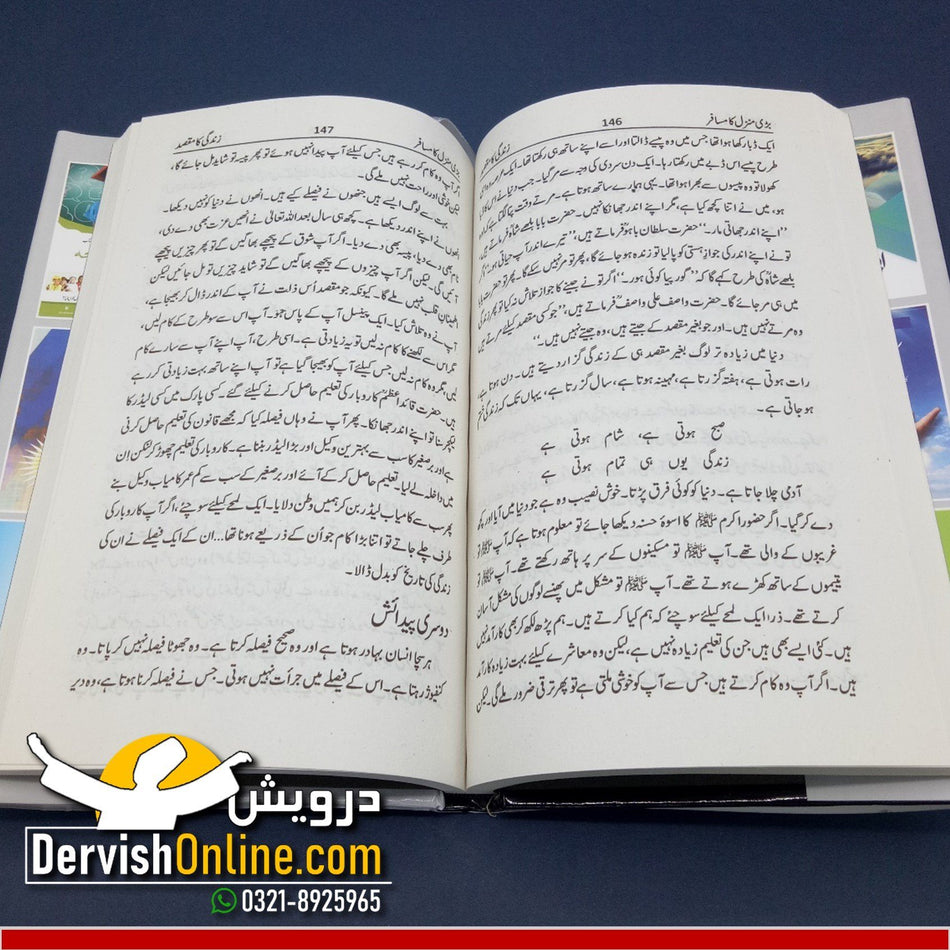 بڑی منزل کا مسافر 146 زندگی کا مقصد
ایک ڈبا رکھا ہوا تھا جس میں وہ پیسے ڈالتا اور اسے اپنے ساتھ ہی رکھتا تھا۔ ایک عرصہ وہ اسی
طرح پیسے اس ڈبے میں رکھتا رہا۔ ایک دن سردی کی وجہ سے مر گیا۔ جب دنیا نے اس کا ڈبا
کھولا تو وہ پیسوں سے بھرا ہوا تھا۔ یہی ہمارے ساتھ ہوتا ہے۔ مرتے وقت پتا لگتا ہے کہ
ہو، میں نے اتنا کچھ کیا ہے، مگر اپنے اندر جھانکا نہیں۔ حضرت بابا بلھے شاہؒ فرماتے ہیں،
’’اپنے اندر جھاتی مار۔‘‘ حضرت سلطان باہوؒ فرماتے ہیں، ’’تیرے اندر آپ حیاتی ہو‘‘
تو نے اپنے اندر کی جوازِ ہستی کو پا لیا تو زندہ ہو جائے گا، پھر تو مر نہیں سکے گا۔ پھر تو حضرت بابا
بلھے شاہؒ کی طرح کہے گا کہ ’’گور پیا کوئی ہور۔‘‘ اگر تو نے جینے کا جواز تلاش نہ کیا تو پھر زندگی
میں ہی مر جائے گا۔ حضرت واصف علی واصفؒ فرماتے ہیں، ’’جو کسی مقصد کیلئے مرتے ہیں
وہ مرتے نہیں ہیں۔ اور جو بغیر مقصد کے جیتے ہیں، وہ جیتے نہیں ہیں۔‘‘
دنیا میں زیادہ تر لوگ بغیر مقصد ہی کے زندگی گزار دیتے ہیں۔ دن ہوتا ہے،
رات ہوتی ہے، ہفتہ گزرتا ہے، مہینہ ہوتا ہے، سال گزرتا ہے، یہاں تک کہ زندگی ختم
ہو جاتی ہے۔
صبح ہوتی ہے، شام ہوتی ہے
زندگی یوں ہی تمام ہوتی ہے
آدمی چلا جاتا ہے۔ دنیا کو کوئی فرق پڑتا۔ خوش نصیب وہ ہے جو دنیا میں آیا اور کچھ
دے کر گیا۔ اگر حضور اکرم ﷺ کا اسوۂ حسنہ دیکھا جائے تو معلوم ہوتا ہے کہ آپ ﷺ
غریبوں کے والی تھے۔ آپ ﷺ تو مسکینوں کے سر پر ہاتھ رکھتے تھے۔ آپ ﷺ تو
یتیموں کے ساتھ کھڑے ہوتے تھے۔ آپ ﷺ تو مشکل میں پھنسے لوگوں کی مشکل آسان
کرتے تھے۔ ذرا ایک لمحے کیلئے سوچئے کہ ہم کیا کرتے ہیں۔ ہم پڑھ لکھ کر بھی کارآمد نہیں
ہیں۔ کئی ایسے بھی ہیں جن کی تعلیم زیادہ نہیں ہے، لیکن وہ معاشرے کیلئے بہت زیادہ کارآمد
ہیں۔ اگر آپ وہ کام کرتے ہیں جس سے آپ کو خوشی ملتی ہے تو پھر ترقی ضرور ملے گی۔ لیکن
بڑی منزل کا مسافر 147 زندگی کا مقصد
اگر آپ وہ کام کر رہے ہیں جس کیلئے آپ پیدا نہیں ہوئے تو پھر پیسہ تو شاید مل جائے گا،
لیکن خوشی اور راحت نہیں ملے گی۔
بہت سے لوگ ایسے ہیں جنھوں نے فیصلے کیے ہیں۔ انھوں نے دنیا کو نہیں دیکھا۔
انھوں نے اپنے اندر دیکھا ہے۔ کچھ ہی سال بعد اللہ تعالیٰ نے انھیں عزت بھی دے دی،
نام بھی دے دیا، پیسہ بھی دے دیا۔ اگر آپ شوق کے پیچھے بھاگیں گے تو پھر چیزیں پیچھے
آئیں گی۔ لیکن اگر آپ چیزوں کے پیچھے بھاگیں گے تو شاید چیزیں تو مل جائیں لیکن
اطمینانِ قلب نہیں ملے گا۔ کیونکہ جو مقصد اُس ذات نے آپ کے اندر ڈال کر بھیجا ہے،
آپ نے وہ تلاش کیا۔ ایک پینسل آپ کے پاس ہو۔ آپ اس سے سو طرح کے کام لیں،
مگر اس سے لکھنے کا کام نہ لیں تو یہ زیادتی ہے۔ اسی طرح، آپ اپنے آپ سے سارے کام
لیں، مگر وہ کام نہ لیں جس کیلئے آپ کو بھیجا گیا ہے تو آپ اپنے ساتھ بہت زیادتی کر رہے
ہیں۔ حضرت قائد اعظمؒ کاروبار کی تعلیم حاصل کرنے کیلئے گئے۔ کسی پارک میں کسی لیڈر کا
لیکچر سنا تو اپنے اندر جھانکا۔ پھر آپ نے وہاں فیصلہ کیا کہ مجھے قانون کی تعلیم حاصل کرنی
ہے اور برصغیر کا سب سے بہترین وکیل اور بڑا لیڈر بننا ہے۔ کاروبار کی تعلیم چھوڑ کر لنکن اِن
میں داخلہ لے لیا۔ تعلیم حاصل کر کے آئے اور برصغیر کے سب سے کم عمر کامیاب وکیل بنے
پھر سب سے کامیاب لیڈر بن کر ہمیں وطن دلایا۔ ایک لمحے کیلئے سوچئے، اگر آپ کاروبار کی
طرف چلے جاتے تو اتنا بڑا کام جو اُن کے ذریعے ہونا تھا... ان کے ایک فیصلے نے ان کی
زندگی کی تاریخ کو بدل ڈالا۔
دوسری پیدائش
ہر سچا انسان بہادر ہوتا ہے اور وہ صحیح فیصلہ کرتا ہے۔ وہ جھوٹا فیصلہ نہیں کر پاتا۔ وہ
کنفیوژ رہتا ہے۔ اس کے فیصلے میں جرأت نہیں ہوتی۔ جس نے فیصلہ کرنا ہوتا ہے، وہ دیر
درویش
DervishOnline.com
0321-8925965